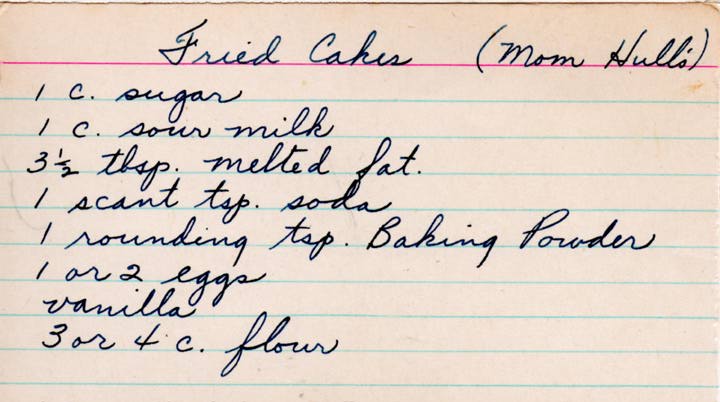 Fried Cakes (Mom Hull's)
1 c. sugar
1 c. sour milk
3 1/2 tbsp. melted fat.
1 scant tsp. soda
1 rounding tsp. Baking Powder
1 or 2 eggs
vanilla
3 or 4 c. flour